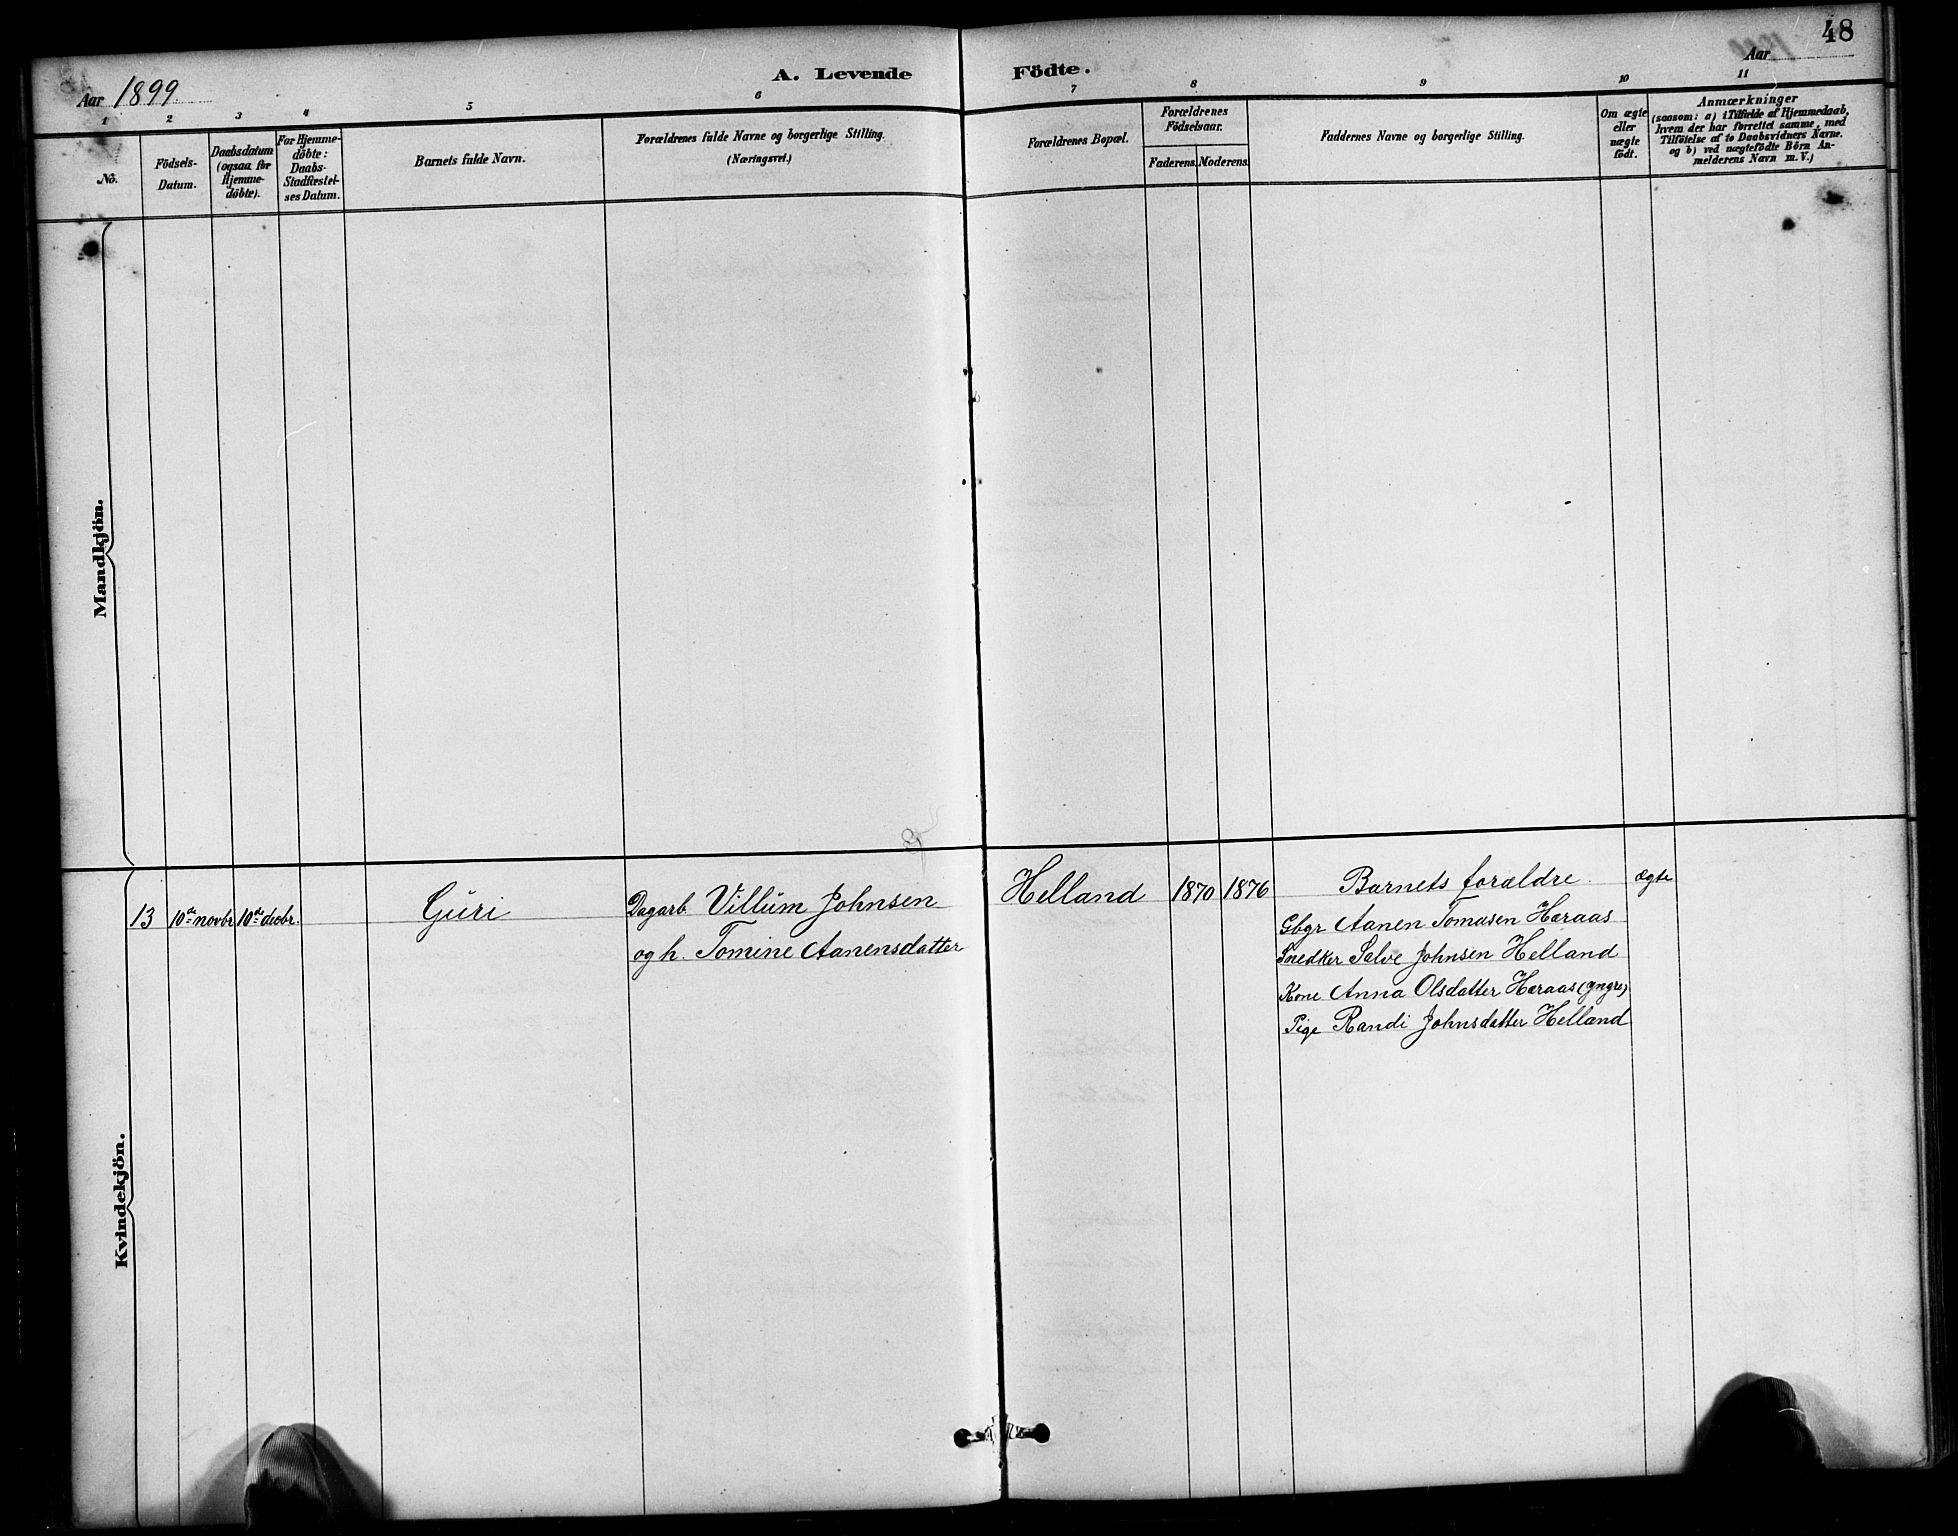 48
Aar 1899.
A. Levende Födte.
Aar
1 2 3 4 5 6 7 8 9 10 11
No.
Födsels-
Datum.
Daabsdatum
(ogsaa for
Hjemme-
döbte).
For Hjemme-
döbte:
Daabs-
Stadfæstel-
ses Datum.
Barnets fulde Navn.
Forældrenes fulde Navne og borgerlige Stilling.
(Næringsvei.)
Forældrenes Bopæl.
Forældrenes
Födselsaar.
Faderens. Moderens.
Faddernes Navne og borgerlige Stilling.
Om ægte
eller
uægte
födt.
Anmærkninger
(saasom: a) i Tilfælde af Hjemmedaab,
hvem der har forrettet samme, med
Tilföielse af to Daabsvidners Navne.
og b) ved uægtefödte Börn An-
melderens Navn m.V.)
Mandkjön.
Kvindekjön.
13 10de novbr 10de decbr. Guri Dagarb. Villum Johnsen Helland 1870 1876 Barnets forældre. ægte
og h. Tomine Aanensdatter
Gbgr Aanen Tomasen Haraas
Snedker Salve Johnsen Helland
Kone Anna Olsdatter Haraas (yngre)
Pige Randi Johnsdatter Helland